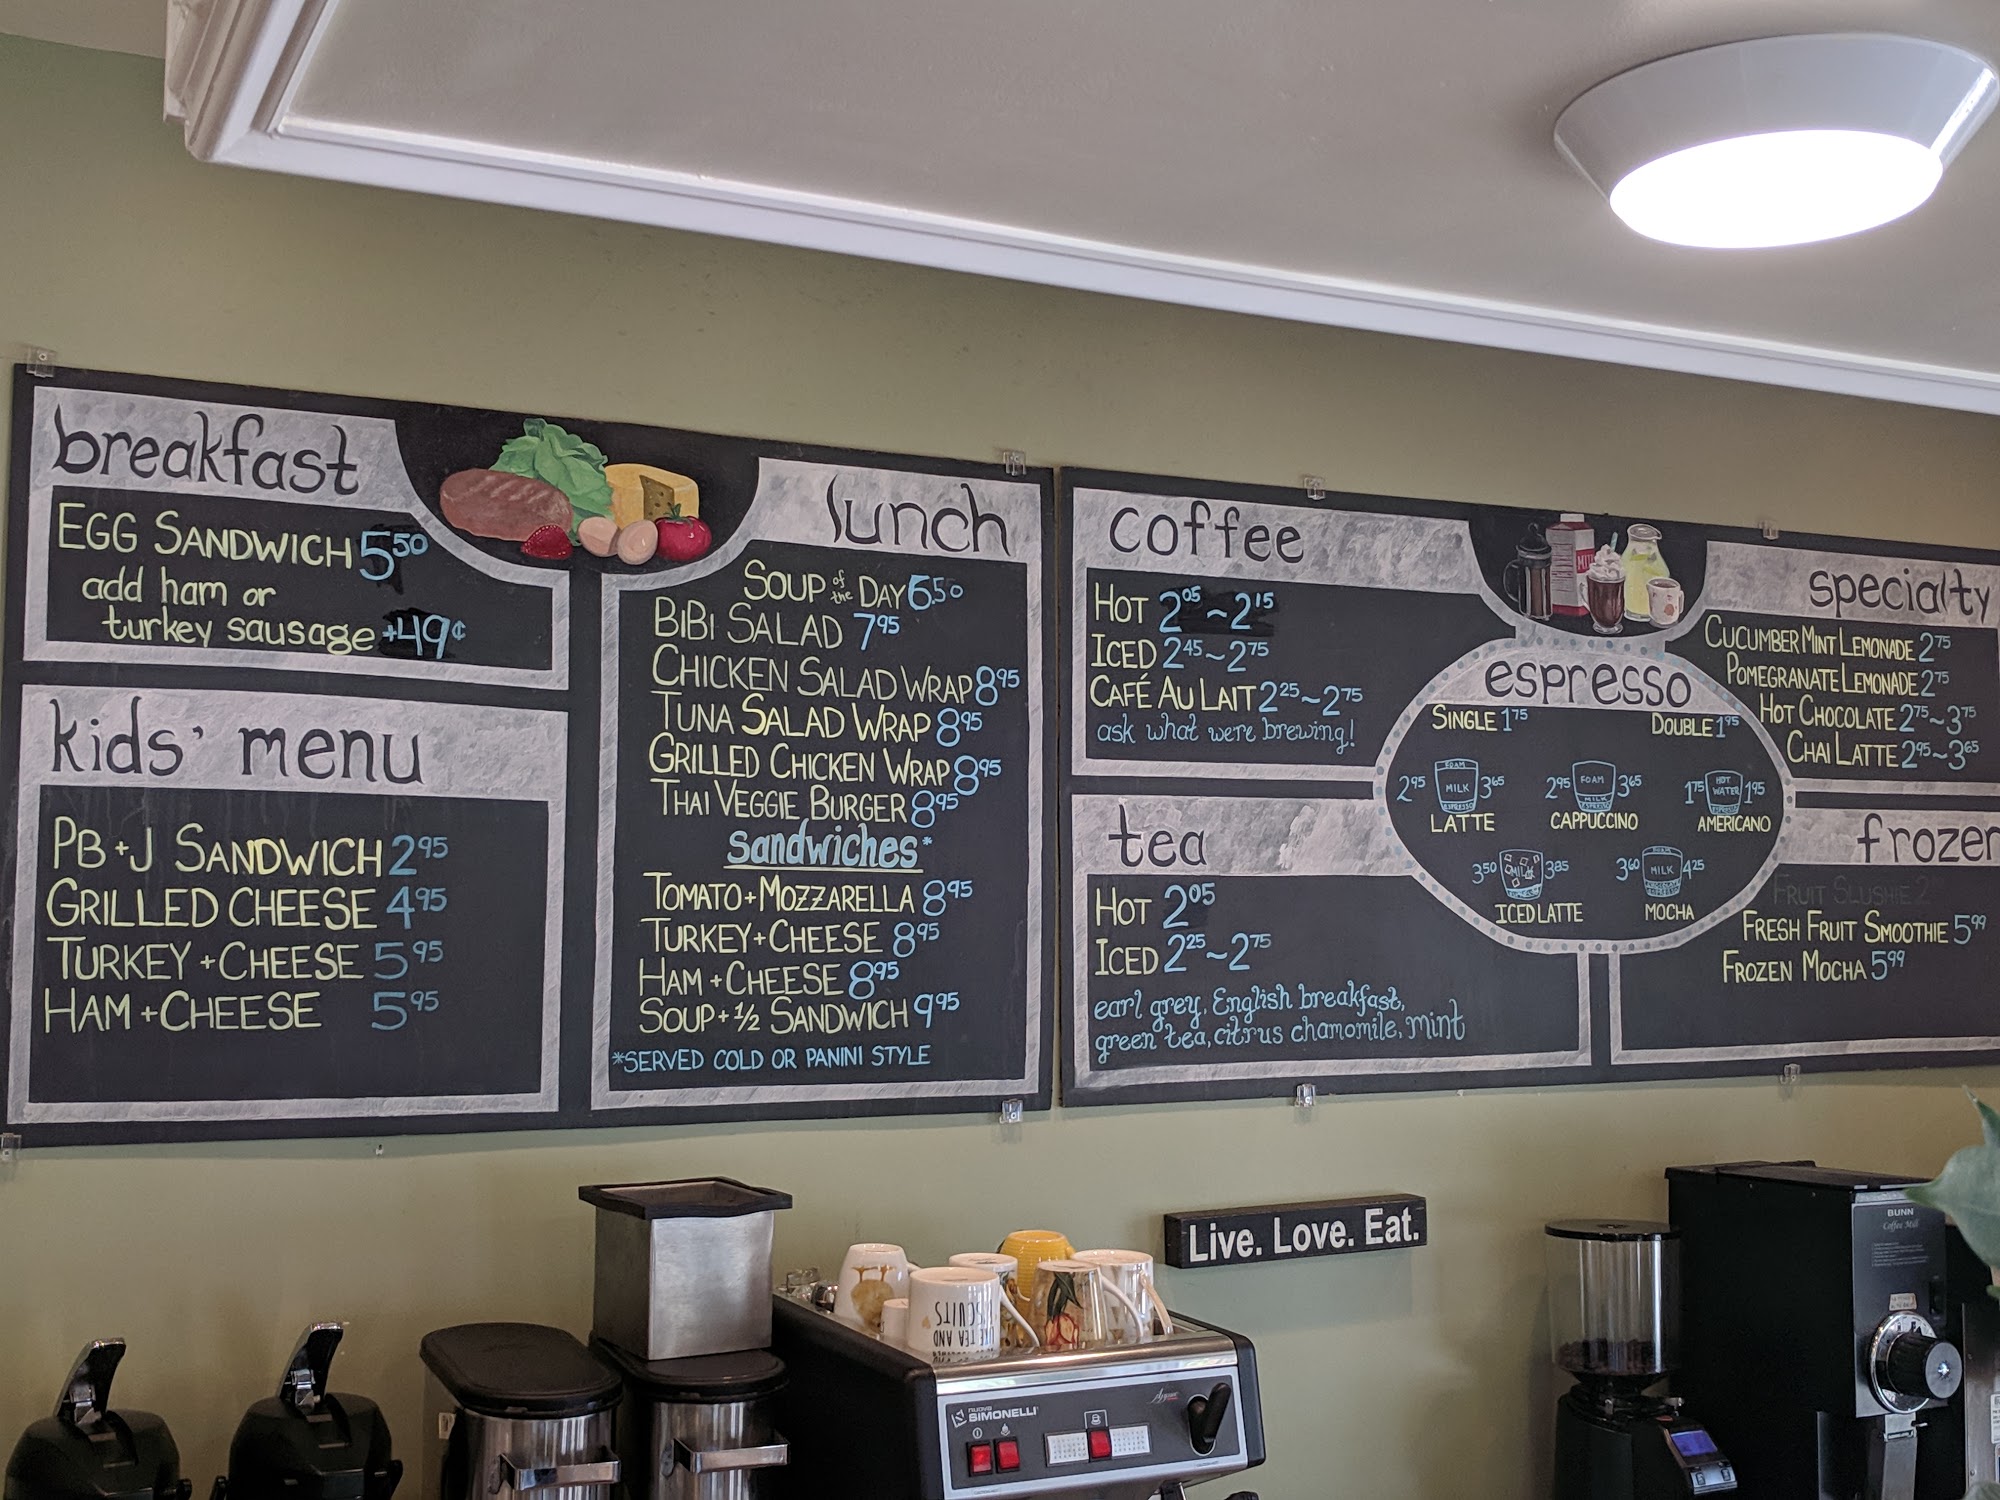 breakfast
EGG SANDWICH 5.50
add ham or
turkey sausage +49¢
kids' menu
PB+J SANDWICH 2.95
GRILLED CHEESE 4.95
TURKEY+CHEESE 5.95
HAM+CHEESE 5.95
lunch
SOUP of the DAY 6.50
BIBI SALAD 7.95
CHICKEN SALAD WRAP 8.95
TUNA SALAD WRAP 8.95
GRILLED CHICKEN WRAP 8.95
THAI VEGGIE BURGER 8.95
Sandwiches*
TOMATO+MOZZARELLA 8.95
TURKEY+CHEESE 8.95
HAM+CHEESE 8.95
SOUP+1/2 SANDWICH 9.95
*SERVED COLD OR PANINI STYLE
coffee
HOT 2.05~2.15
ICED 2.45~2.75
CAFÉ AU LAIT 2.25~2.75
ask what were brewing!
tea
HOT 2.05
ICED 2.25~2.75
earl grey, English breakfast,
green tea, citrus chamomile, mint
espresso
SINGLE 1.75 DOUBLE 1.95
2.95 FOAM MILK ESPRESSO 3.65
LATTE
2.95 FOAM MILK ESPRESSO 3.65
CAPPUCCINO
1.75 HOT WATER ESPRESSO 1.95
AMERICANO
3.50 MILK 3.85
ICED LATTE
3.60 MILK 4.25
MOCHA
specialty
CUCUMBER MINT LEMONADE 2.75
POMEGRANATE LEMONADE 2.75
HOT CHOCOLATE 2.75~3.75
CHAI LATTE 2.95~3.65
frozen
FRUIT SLUSHIE 2
FRESH FRUIT SMOOTHIE 5.99
FROZEN MOCHA 5.99
Live. Love. Eat.
nuova
SIMONELLI
BUNN
Coffee Mill
TEA AND